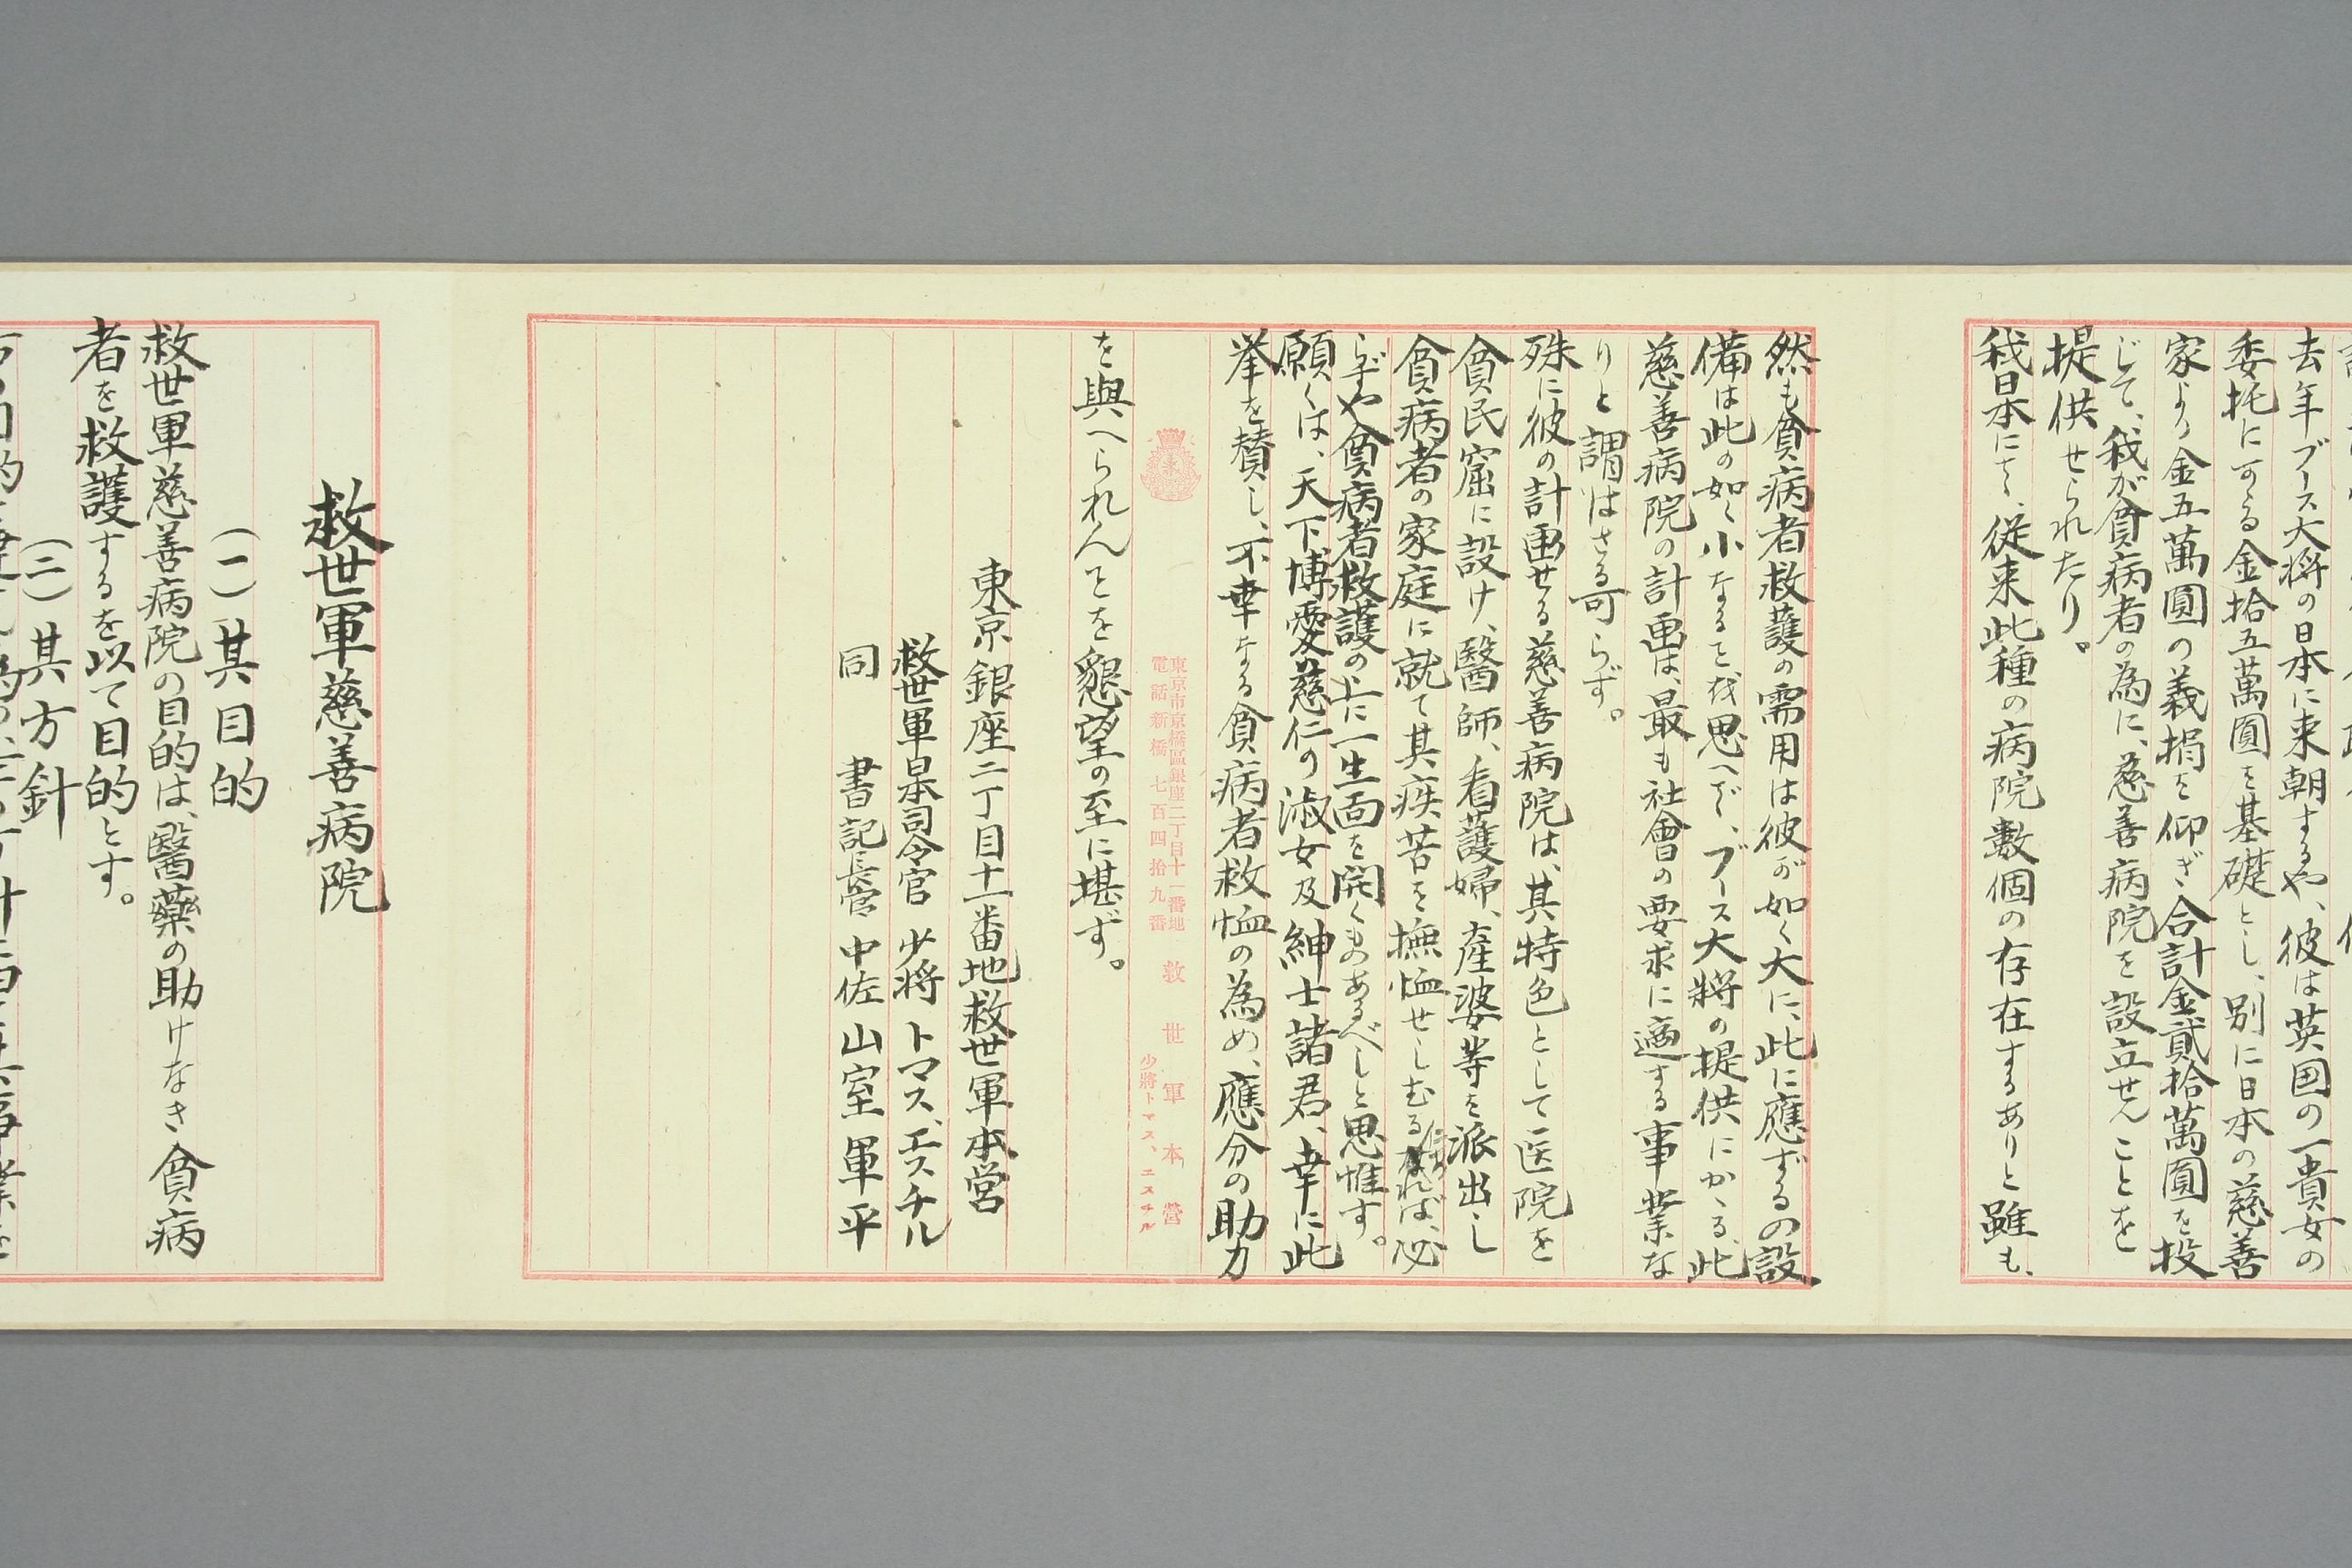 去年ブース大将の日本に来朝するや、彼は英国の一貴女の
委托に可る金拾五萬圓を基礎とし、別に日本の慈善
家より金五萬圓の義捐を仰ぎ、合計金貳拾萬圓を投
じて、我が貧病者の為に、慈善病院を設立せんことを
提供せられたり。
我日本にて、従来此種の病院數個の存在するありと雖も、
然も貧病者救護の需用は彼が如く大に、此に應ずるの設
備は此の如く小なるを我思へば、ブース大將の提供にかゝる、此
慈善病院の計画は、最も社會の要求に適する事業な
りと謂はざる可らず。
殊に彼の計画せる慈善病院は、其特色として医院を
貧民窟に設け、醫師、看護婦、産婆等を派出し
貧病者の家庭に就て其疾苦を撫恤せしむるれば、必
らずや貧病者救護の上に一生面を開くものあるべしと思惟す。
願くは、天下博愛慈仁の淑女及紳士諸君、幸に此
挙を賛し、不幸なる貧病者救恤の為め、應分の助力
東京市京橋區銀座二丁目十一番地
電話新橋七百四拾九番
救世軍本營
少將トマス、エスチル
を與へられんことを懇望の至に堪ず。
東京銀座二丁目十一番地救世軍本営
救世軍日本司令官 少将 トマス、エスチル
同 書記長官 中佐 山室軍平
救世軍慈善病院
(一)其目的
救世軍慈善病院の目的は、醫藥の助けなき貧病
者を救護するを以て目的とす。
(二)其方針